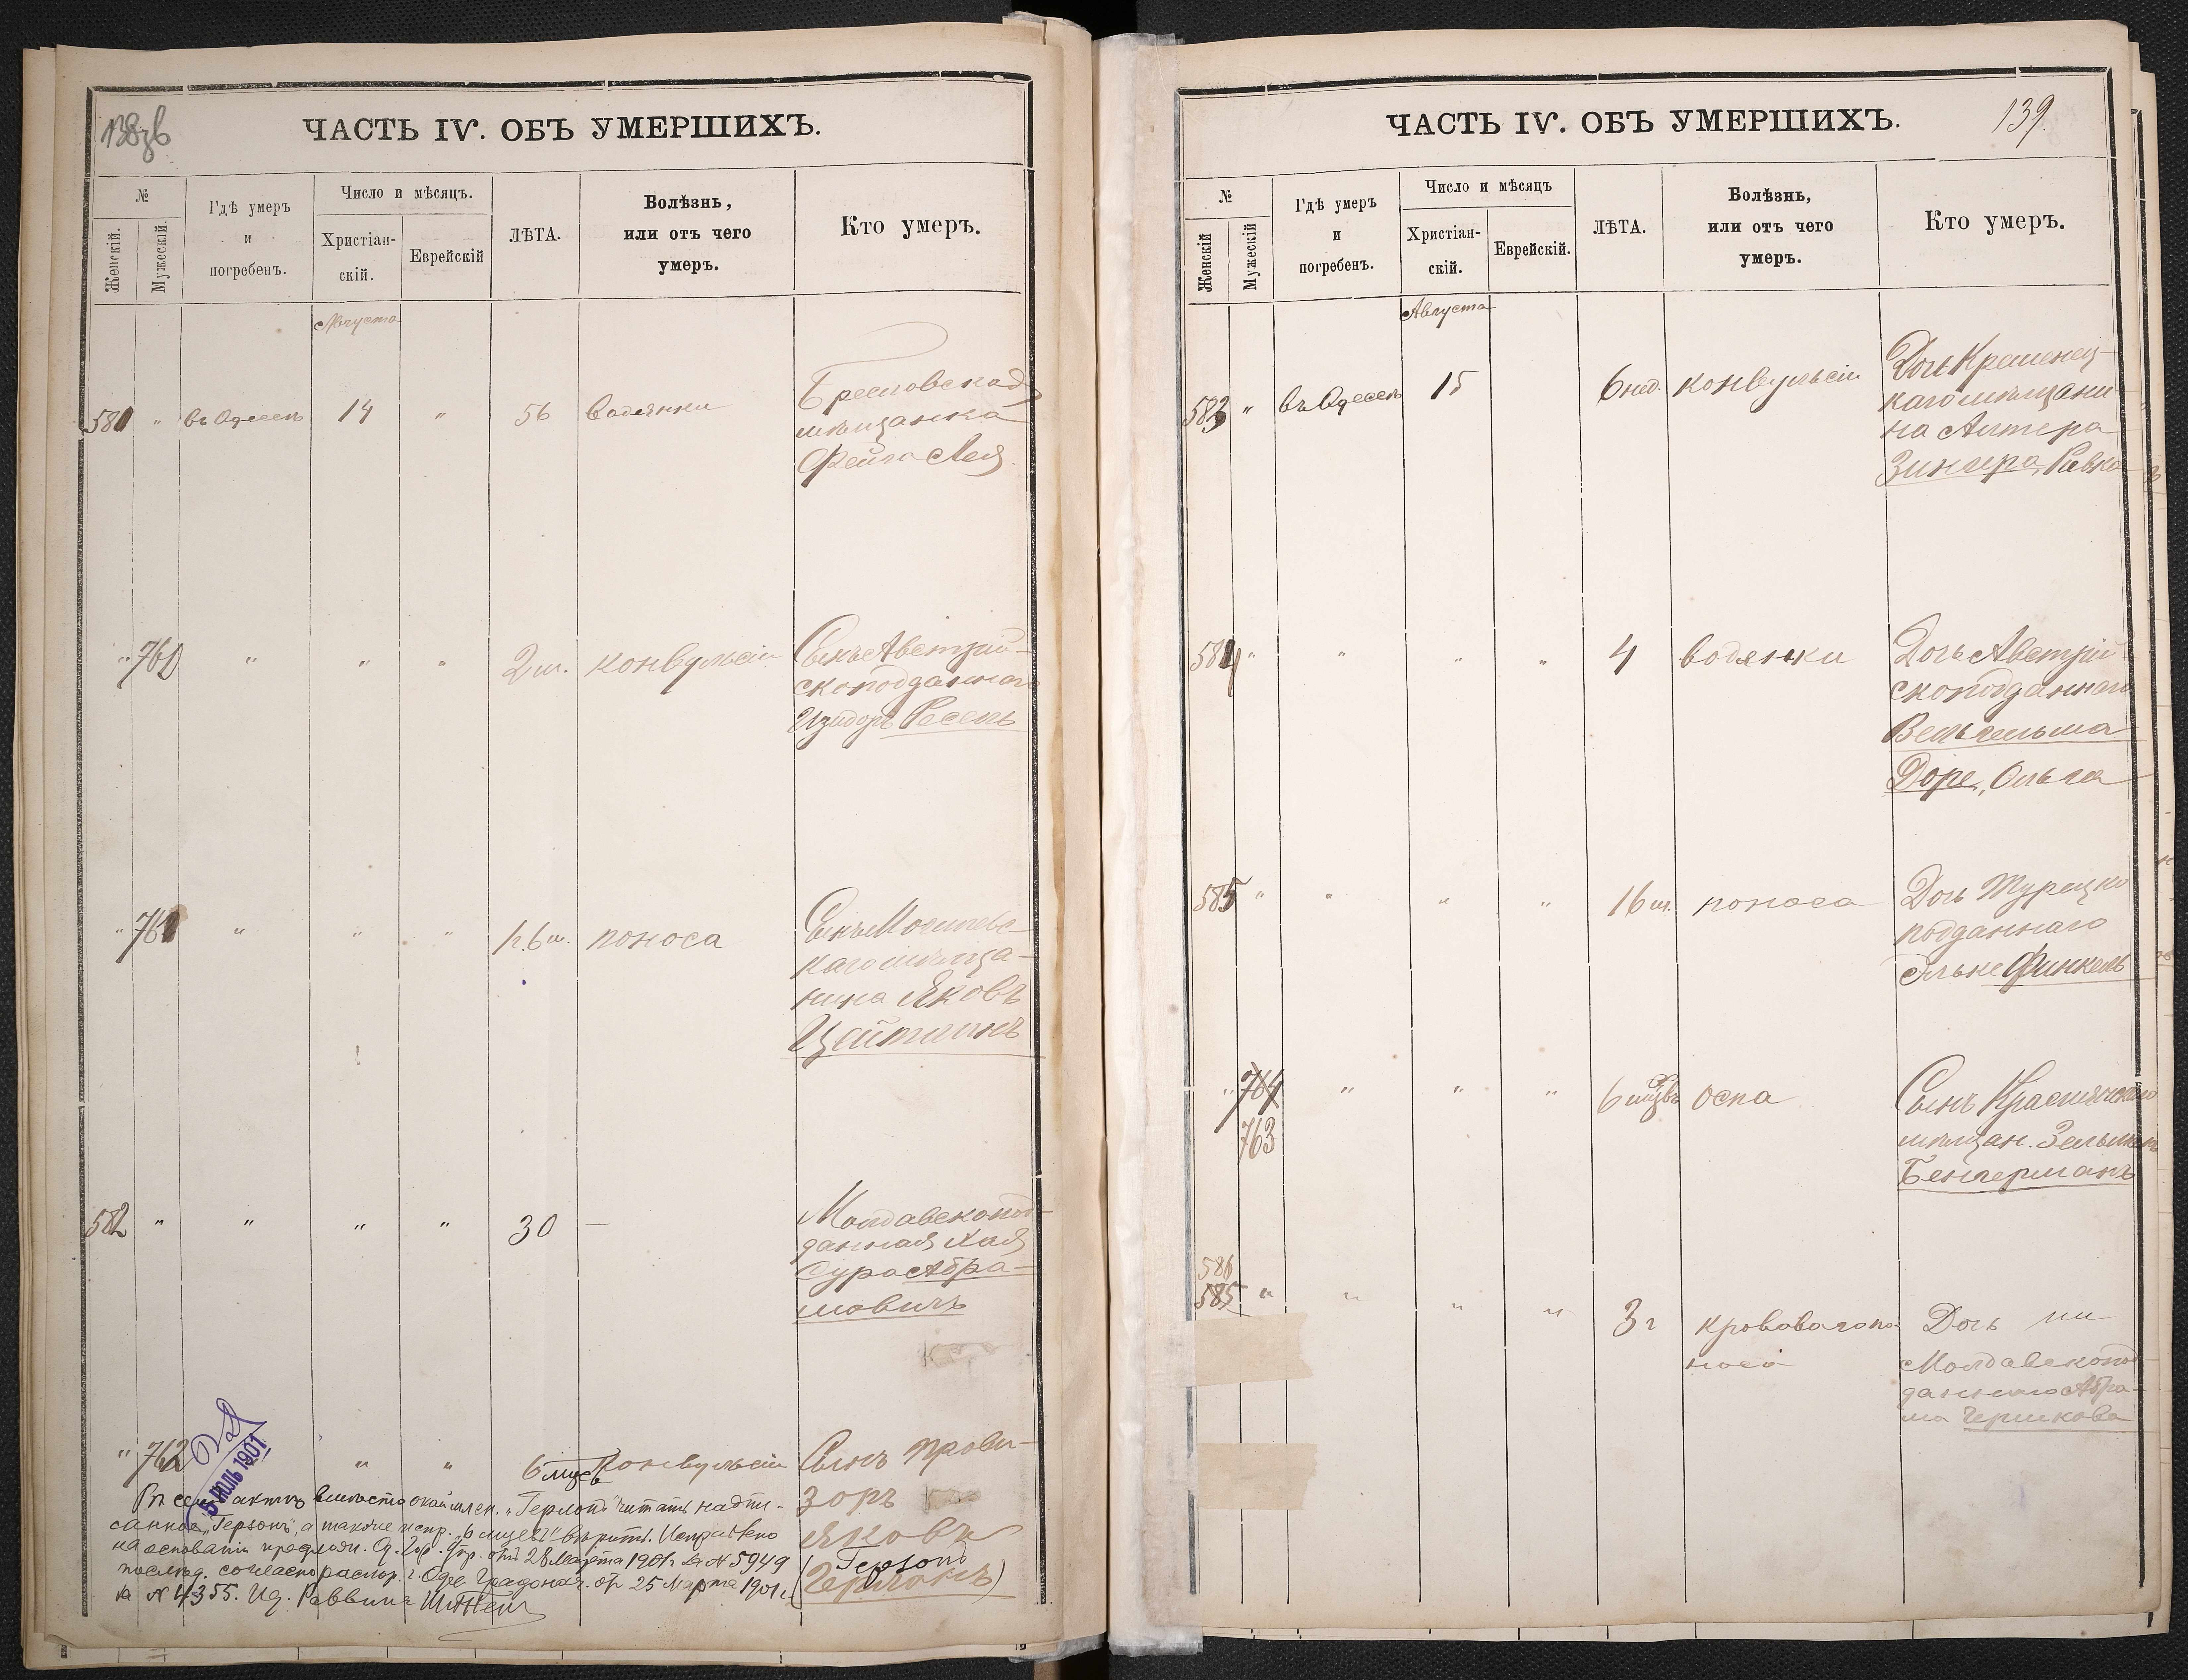 138 об
ЧАСТЬ IV. ОБЪ УМЕРШИХЪ.
№
Женскій.
Мужескій.
Гдѣ умеръ
и
погребенъ.
Число и мѣсяцъ.
Христіан-
скій.
Еврейскій
ЛѢТА.
Болѣзнь,
или отъ чего
умеръ.
Кто умеръ.
Августа
581 " въ Одессѣ 14 " 56 водянки
Бреславская
мѣщанка
Фейга Лея
" 760 " " " 2 м. конвульсіи
Сынъ Австрій-
скоподданнаго
Изидоръ
" 761 " " " 1 г. 6 м. поноса
Сынъ Могилевс-
каго мѣща-
нина Яковъ
Цейтлинъ
582 " " " " 30 —
Молдавскопод-
данная Хая
Сура Абра-
мовичъ
" 762 " " 6 мцев конвульсіи
Сынъ Прови-
зоръ
Яковъ
Герзонъ
(Герлонъ)
5 ІЮЛЬ 1901
Въ семъ актѣ вмѣсто окаймлен. „Герлонъ" читать надпи-
санное „Герзонъ", а также испр. „6 мцев" вѣрить. Исправлено
на основаніи предлож. О. Гор. Упр. отъ 28 Марта 1901 г. за № 5949
послѣд. согласно распор. г. Одес. Градонач. от 25 Марта 1901 г.
за № 4355. Ид. Раввина
ЧАСТЬ IV. ОБЪ УМЕРШИХЪ.
139.
№
Женскій
Мужескій
Гдѣ умеръ
и
погребенъ.
Число и мѣсяцъ
Христіан-
скій.
Еврейскій.
ЛѢТА.
Болѣзнь,
или отъ чего
умеръ.
Кто умеръ.
Августа
583 " въ Одессѣ 15 6 нед. конвульсіи
Дочь Кременец-
каго мѣщани-
на Алтера
Зингера, Ривка
584 " " " " 4 водянки
Дочь Австрій-
скоподданнаго
Вельгельма
Доре, Ольга
585 " " " " 16 м. поноса
Дочь Турецко
подданнаго
Эльке Финкель
" 764 " " " 6 мцвъ оспа
763
Сынъ
мѣщан. Зельманъ
Бенгерманъ
586
585 " " " " 3 г кроваваго по-
носа
Дочь
Молдавскопод-
даннаго Абра-
ма Черикова